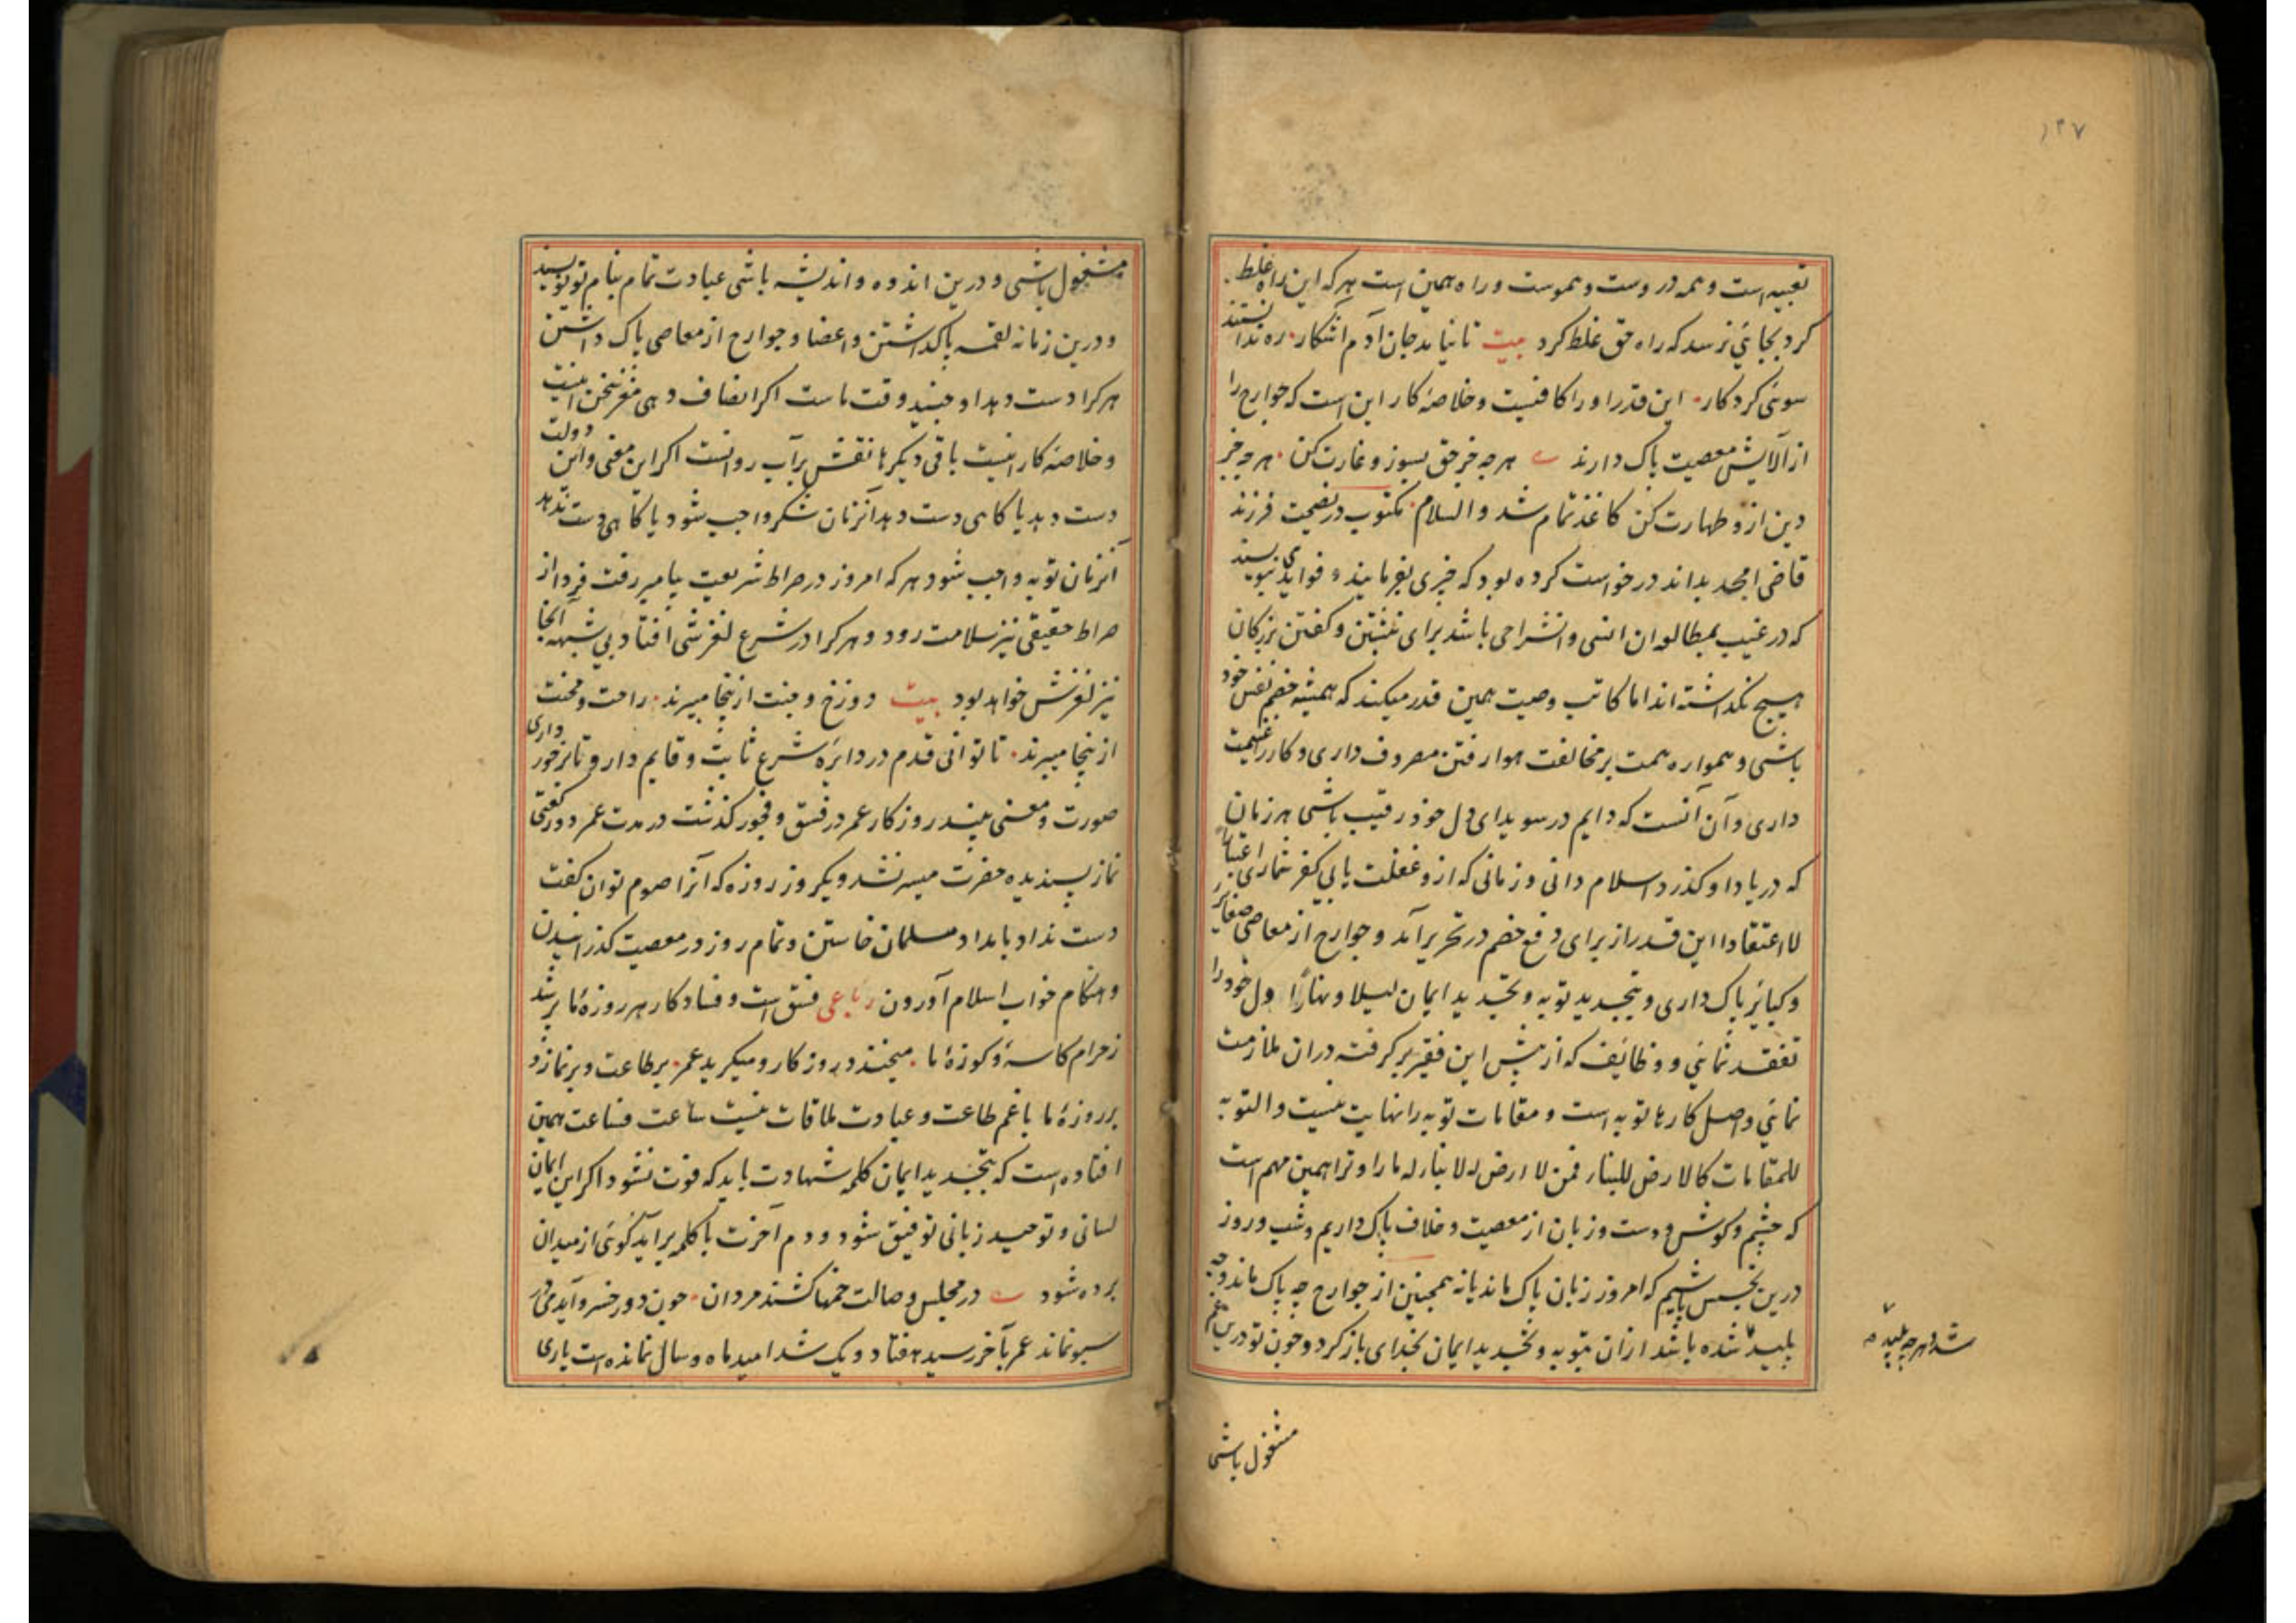 ۱۴۷
تعبیه است و همه دروست و هموست و راه همین است هر که این راه غلط
کرد بجائی نرسد که راه حق غلط کرد بیت تا نیاید جان آدم آشکار ره ندانستند
سوئی کردکار این قدر او را کافیست و خلاصه کار این است که جوارح را
از آلایش معصیت پاک دارند هرچه جز حق بسوز و غارت کن هرچه جز
دین ازو طهارت کن کاغذ تمام شد والسلام مکتوب در نصیحت فرزند
قاضی امجد بداند درخواست کرده بود که چیزی بفرمایند و فوایدی بنویسند
که در غیب بمطالعه ان انسی و انشراحی باشد برای نبشتن و کفتن بزرکان
هیچ نکداشته اند اما کاتب وصیت همین قدر میکند که همیشه خصم نفس خود
باشی و همواره همت بر مخالفت هوا رفتن مصروف داری و کار را غنیمت
داری و آن آنست که دایم در سویدای دل خود رقیب باشی هر زمان
که در یاد او کذرد اسلام دانی و زمانی که ازو غفلت یابی کفر شماری اعتبارا
لا اعتقادا این قدر از برای دفع خصم در تحریر آمد و جوارح از معاصی صغایر
و کبایر پاک داری و بتجدید توبه و تجدید ایمان لیلا و نهارًا دل خود را
تفقد نمائی و وظائف که از پیش این فقیر بر کرفته دران ملازمت
نمائی و اصل کارها توبه است و مقامات توبه را نهایت نیست والتوبه
للمقامات کالارض للبناء فمن لا ارض له لا بناء له ما را و ترا همین مهم است
که چشم و کوش و دست و زبان از معصیت و خلاف پاک داریم و شب و روز
درین تجسس باشیم که امروز زبان پاک ماند یا نه همچنین از جوارح چه پاک ماند و چه
پلید شده باشد ازان بتوبه و تجدید ایمان بخدای باز کرد و چون تو درین غم
شد و هرچه پلید
مشغول باشی
مشغول باشی و درین اندوه و اندیشه باشی عبادت تمام بنام تو نویسند
و درین زمانه لقمه پاک داشتن و اعضا و جوارح از معاصی پاک داشتن
هر کرا دست دهد او جنید وقت ماست اکر انصاف دهی مغز سخن اینست
و خلاصه کار اینست باقی دیکرها نقش بر آب روانست اکر این معنی و این دولت
دست دهد یا کاهی دست دهد آنزمان شکر واجب شود یا کاهی دست ندهد
آنزمان توبه واجب شود هر که امروز در صراط شریعت پیامبر رفت فردا از
صراط حقیقی نیز سلامت رود و هر کرا در شرع لغزشی افتاد بی شبهه آنجا
نیز لغزش خواهد بود بیت دوزخ و جنت ازینجا میبرند راحت و محنت
ازینجا میبرند تا توانی قدم در دایره شرع ثابت و قایم دار و تا برخورداری
صورت و معنی بیند روزکار عمر در فسق و فجور کذشت در مدت عمر دو رکعتی
نماز پسندیده حضرت میسر نشد و یکروز روزه که آنرا صوم توان کفت
دست نداد بامداد مسلمان خاستن و تمام روز در معصیت کذرانیدن
و هنکام خواب اسلام آوردن رباعی فسق است و فساد کار هر روزهٔ ما پر شد
ز حرام کاسهٔ و کوزهٔ ما میخندد روزکار و میکرید عمر بر طاعت و بر نماز و
بر روزهٔ ما با غم طاعت و عبادت ملاقات نیست ساعت فساعت همین
افتاده است که بتجدید ایمان کلمه شهادت باید که فوت نشود اکر این ایمان
لسانی و توحید زبانی توفیق شود و دم آخرت با کلمه برآید کوئی از میدان
برده شود در مجلس وصالت خمها کشند مردان چون دور خسرو آید می در
سبو نماند عمر بآخر رسید هفتاد و یک شد امید ماه و سال نمانده است یاری